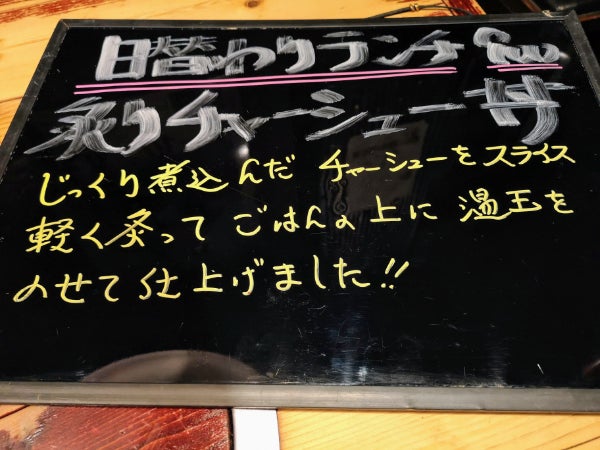 日替わりランチ
炙りチャーシュー丼
じっくり煮込んだ チャーシューをスライス
軽く灸って ごはんの上に 温玉を
のせて仕上げました!!